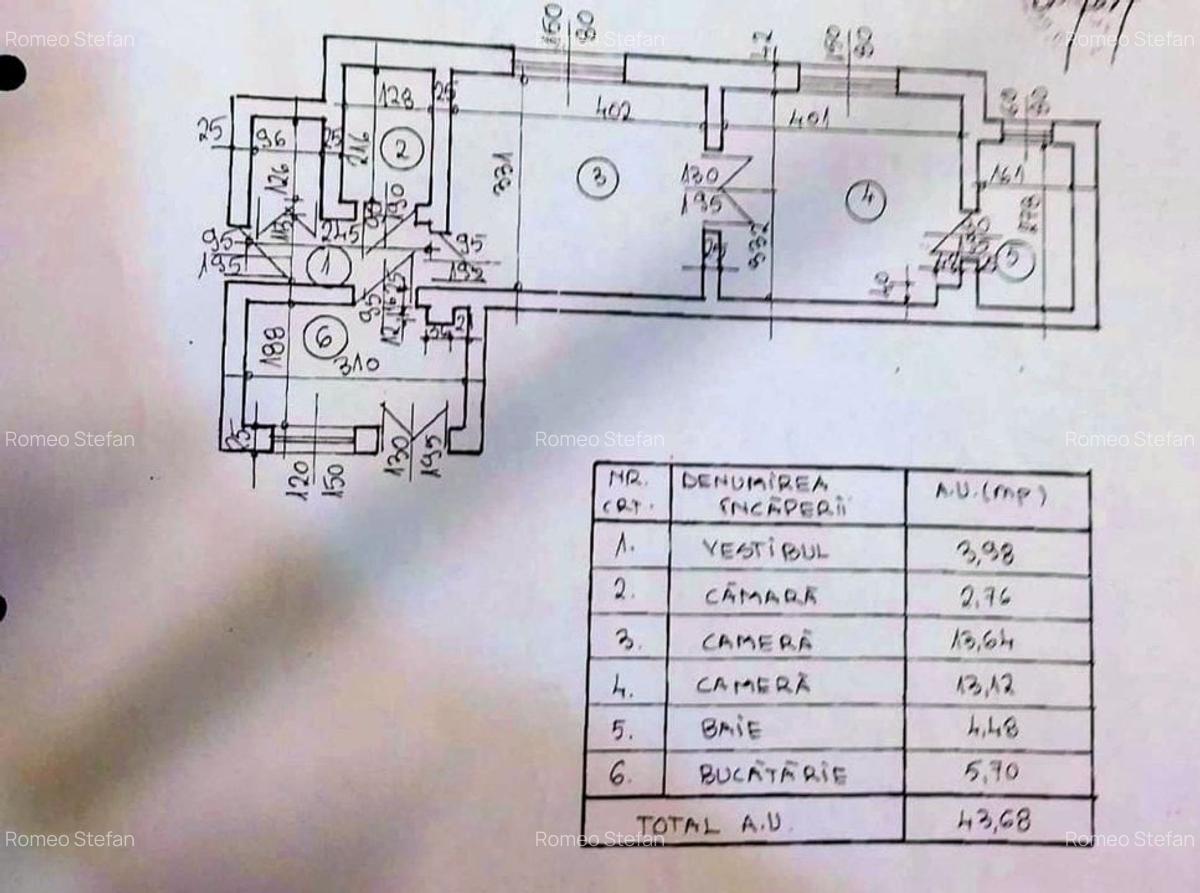 Romeo Stefan
Romeo Stefan
Romeo Stefan
160
80
12
80
60
80
128
25
402
401
25
96
25
216
2
126
331
3
130
195
4
161
278
90
190
245
95
195
1
95
192
24
332
5
95
188
6
310
24
25
130
195
120
150
Romeo Stefan
Romeo Stefan
Romeo Stefan
NR. CRT. DENUMIREA ÎNCĂPERII A.U. (MP)
1. VESTIBUL 3,98
2. CĂMARĂ 2,76
3. CAMERĂ 13,64
4. CAMERĂ 13,12
5. BAIE 4,48
6. BUCĂTĂRIE 5,70
TOTAL A.U. 43,68
Romeo Stefan
Romeo Stefan
Romeo Stefan